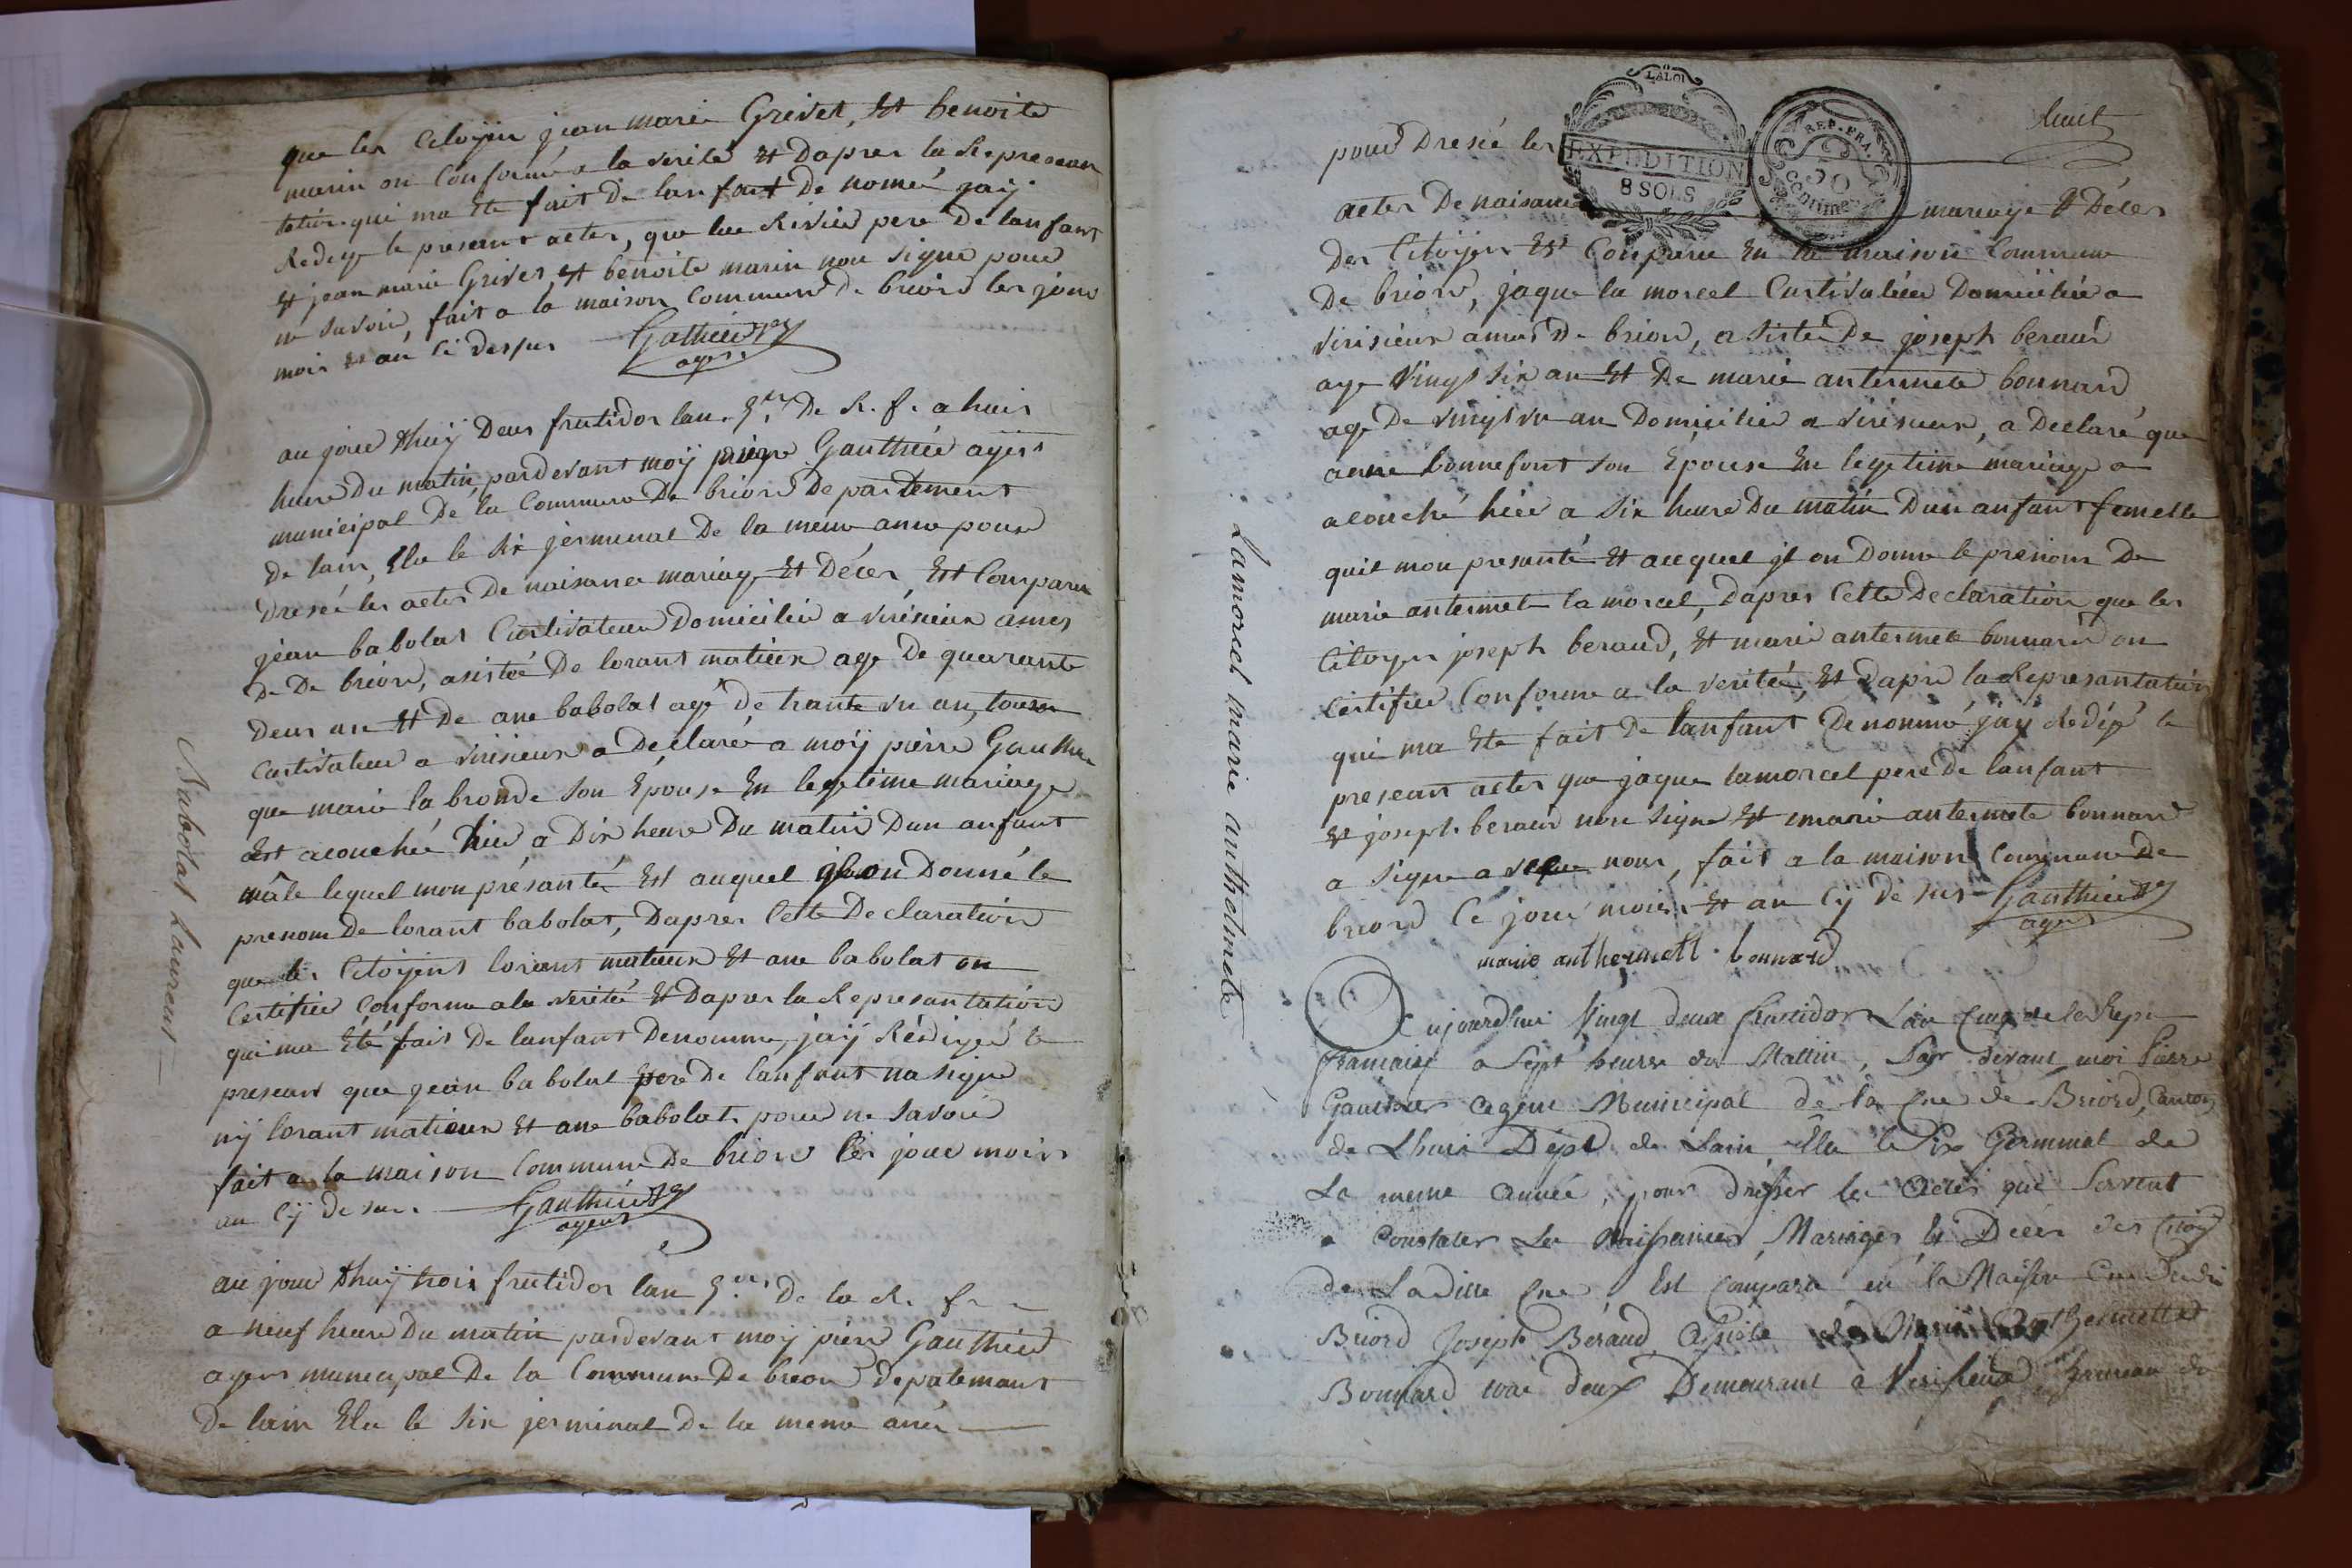 que les Citoyin jean marie Grivet, Et benoite
marin on Conformé a la verité Et Dapres la Represean
tatión qui ma Ete fait De lanfant De nomée jaij
Redege le presant actes, que lue Rivié pere De lanfant
Et jean marie Grivet, Et benoite marin non signe pour
ne savoir, fait a la maison Commune de briord les jour
mois Et an Ci dessus Gathier
agent
au jour dhuÿ Deus frutidor lan 5.em De R. f. a huit
heure Du matin pardevant moÿ pierre Gauthiée ajent
municipal De la Commune De briord Departement
De lain, Elu le six jerminal De la meme anné pour
Dresée les actes De naisance mariage Et Déces, Est Comparu
jean babolat Cultivateur Domicilié a virisieux ameau
De De briord, asistée De lorant matieux age De quarante
Deux an Et De ane babolat agé De trante un an, tousx
Cultivateur a virisieux a Declaré a moÿ pierre Gauthie
que marie la bronde son Epouse En legetime mariage
est acouchée hier a Dix heure Du matin Dun anfant
mâle lequel mon présanté Est auquel il on Donné le
prenom De lorant babolat, Dapres Cette Declaration
que les Citoÿens lorant matieux Et ane babolat on
Certifier Conforme a la verité Et Dapres la Representation
qui ma Eté fait De lanfant Denomme, jaÿ Rédigée le
presant que jean babolat pere De lanfant na signe
nÿ lorant matieux Et ane babolat pour ne savoir
fait a la maison Commune De briord les jour mois
an Cÿ De sus. Gauthier
agent
au jour dhuÿ trois frutidor lan 5.em De la R. f.
a neuf heure Du matin pardevant moÿ pierre Gauthier
agent municipal De la Commune De briord departemant
De lain Elu le six jerminal De la meme anée
Babolat Laurent
huit
LA LOI
EXPEDITION
8 SOLS
REP. FRA.
50
CENTIMES
pour Dresée les
actes De naisance mariage & Déces
Des Citoÿen Est Comparu En la maison Commune
De briord, jaque la morcel Cultivateur Domicilié a
virisieux ameau De briord, a sisté De joseph beraud
age Vingt six an Et De marie antermete bonnard
age De vingt un an Domicilié a virisieux, a Declaré que
anne bonnefont son Epouse En legetime mariage a
acouché hier a six heure Du matin Dun anfant femelle
quil mon presanté Et auequel jl on Donne le prenom De
marie antermete la morcel, Dapres Cette Declaration que les
Citoyen joseph beraud, Et marie antermete bonnard on
Certifier Conforme a la verité, Et Dapré la Representation
qui ma Ete fait De lanfant Denommé jaÿ Rédigé le
presant actes que jaque lamorcel pere De lanfant
Et joseph beraud non signe Et marie antermete bonnard
a signe a nous, fait a la maison Commune De
briord Ce jour mois Et an Cÿ De sus Gauthier
agent
marie anthermett bonnard
Lamorcel marie anthelmete
Aujourdhui Vingt deux fructidor Lan Cinq de la Rep.
française a Sept heures du Mattin, Par devant moi Pierre
Gauthier agent Municipal de la Cne de Briord, Canton
de Lhuis Dépt de Lain, Elu le Six Germinal de
La meme année, pour dresser les Actes qui Servent
a Constater les Naissances, Mariages, et Décés des Citoy
de Ladite Cne, Est Comparu en la Maison Cne dudi
Briord Joseph Beraud Assisté de Marie Anthermette
Bonnard tous deux Demeurant a Virisieux hameau du